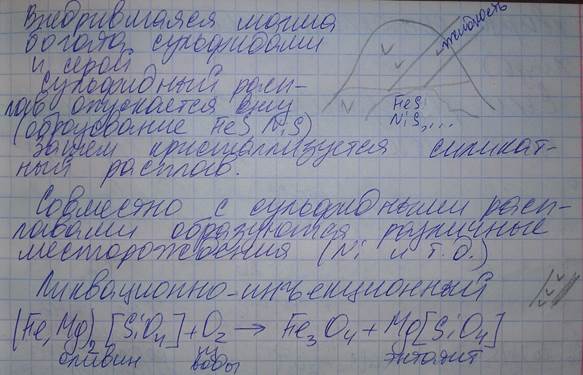 Внедрившаяся магма
богата сульфидами
и серой
Сульфидный расп-
лав опускается вниз
(образование FeS, NiS)
Затем кристаллизуется силикат-
ный расплав.
жидкость
FeS
NiS,...
Совместно с сульфидными расп-
лавами образуются различные
месторождения (Ni и т.д.)
Ликвационно-инъекционный
(Fe, Mg)2 [SiO4] + O2 → Fe3O4 + Mg[SiO4]
оливин воды энстатит